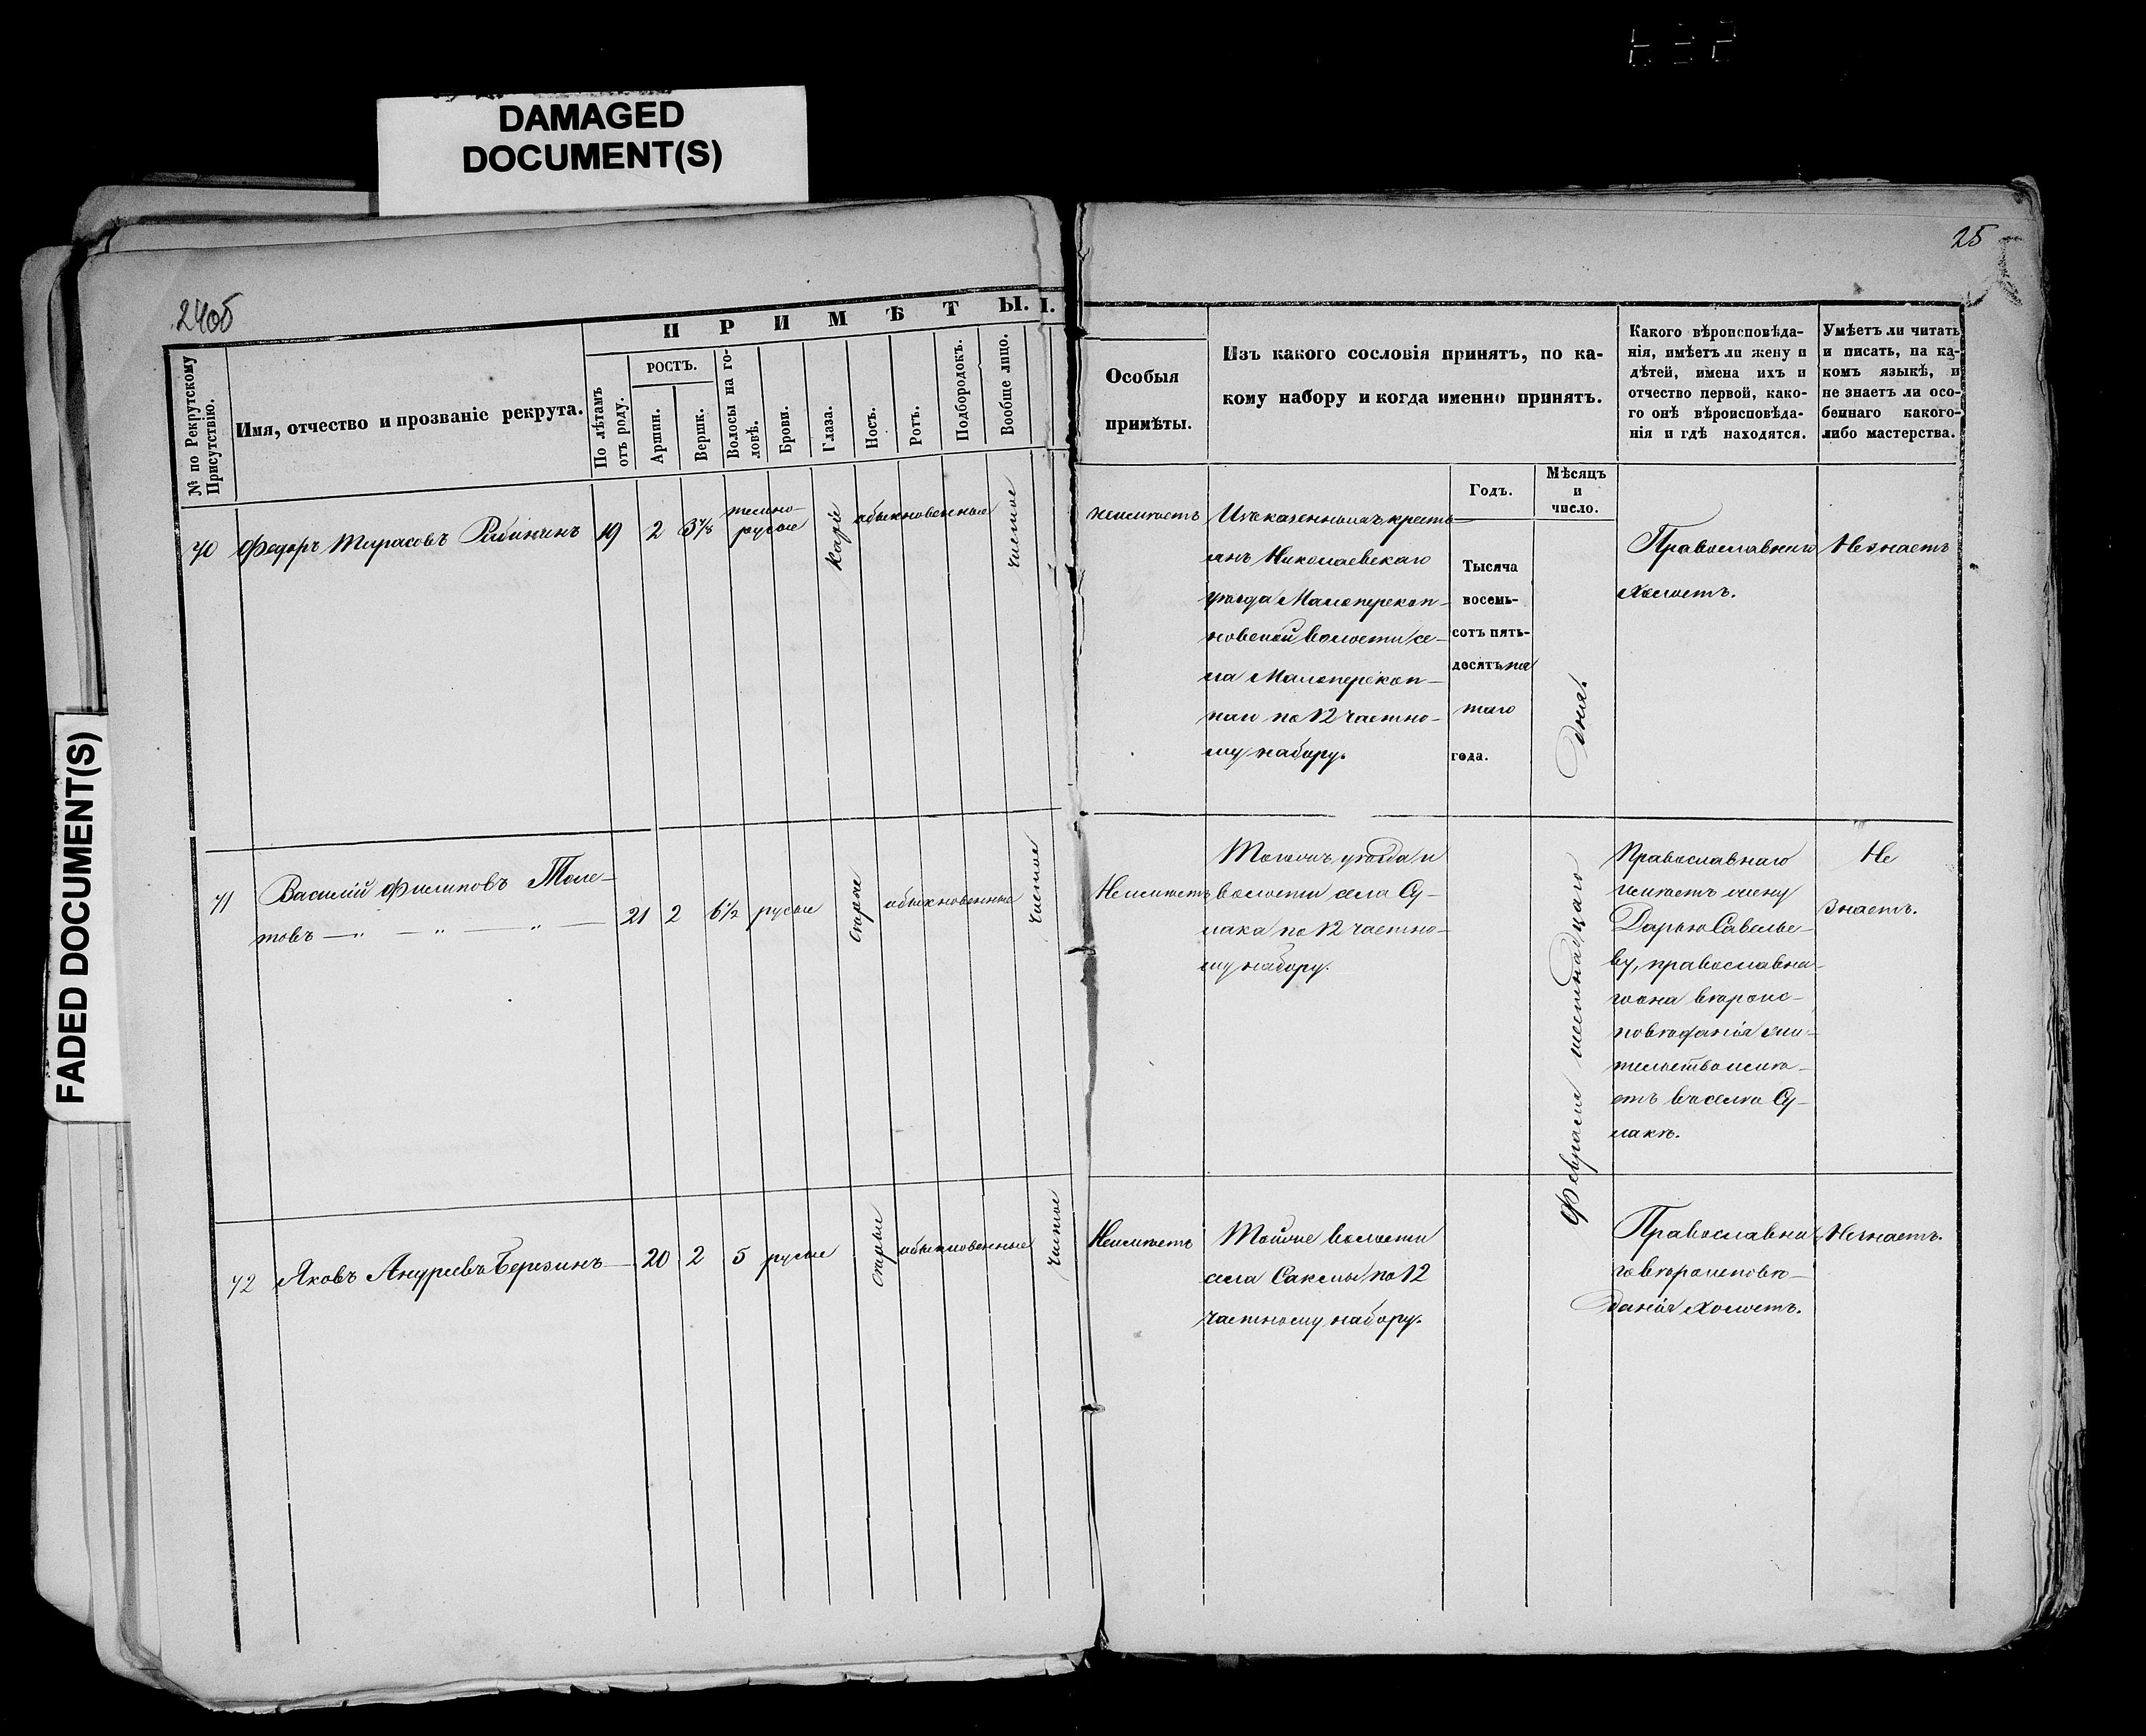 DAMAGED
DOCUMENT(S)
FADED DOCUMENT(S)
24об
25
ПРИМѢТЫ.
№ по Рекрутскому
Присутствію.
Имя, отчество и прозваніе рекрута.
По лѣтамъ
отъ роду.
РОСТЪ.
Аршин.
Вершк.
Волосы на го-
ловѣ.
Брови.
Глаза.
Носъ.
Ротъ.
Подбородокъ.
Вообще лицо.
Особыя
примѣты.
Изъ какого сословія принятъ, по ка-
кому набору и когда именно принятъ.
Годъ.
Мѣсяцъ
и
число.
Какого вѣроисповѣда-
нія, имѣетъ ли жену и
дѣтей, имена ихъ и
отчество первой, како-
го онѣ вѣроисповѣда-
нія и гдѣ находятся.
Умѣетъ ли читать
и писать, на ка-
комъ языкѣ, и
не знаетъ ли осо-
беннаго какого-
либо мастерства.
70 Федоръ Тарасовъ Рябининъ 19 2 3⅞
темно-
русые
каріе
обыкновенные
чистое
неимѣетъ
Изъ казенныхъ кресть-
янъ Николаевскаго
уѣзда Малоперекоп-
новской волости се-
ла Малоперекоп-
наго по 12 частно-
му набору.
Тысяча
восемь-
сотъ пять-
десятъ пя
таго
года.
Февраля шестнадцаго дня.
Православнаго
Холостъ.
Незнаетъ
71 Василій Филиповъ Толс-
товъ — „ — „ — „ — 21 2 6½ русые
сѣрые
обыкновенные
чистое
Неимѣетъ
Тогожъ уѣзда и
волости села Су-
лака по 12 частно-
му набору.
Православнаго
имѣетъ жену
Дарью Савелье-
ву, православна-
го она вѣроис-
повѣданія жи-
тельство имѣ-
етъ въ селѣ Су-
лакѣ.
Не
знаетъ.
72 Яковъ Андреевъ Березинъ — 20 2 5 русые
сѣрые
обыкновенные
чистое
Неимѣетъ
Тойже волости
села Саксмы по 12
частному набору.
Православна
го вѣроисповѣ-
данія холостъ.
Незнаетъ.